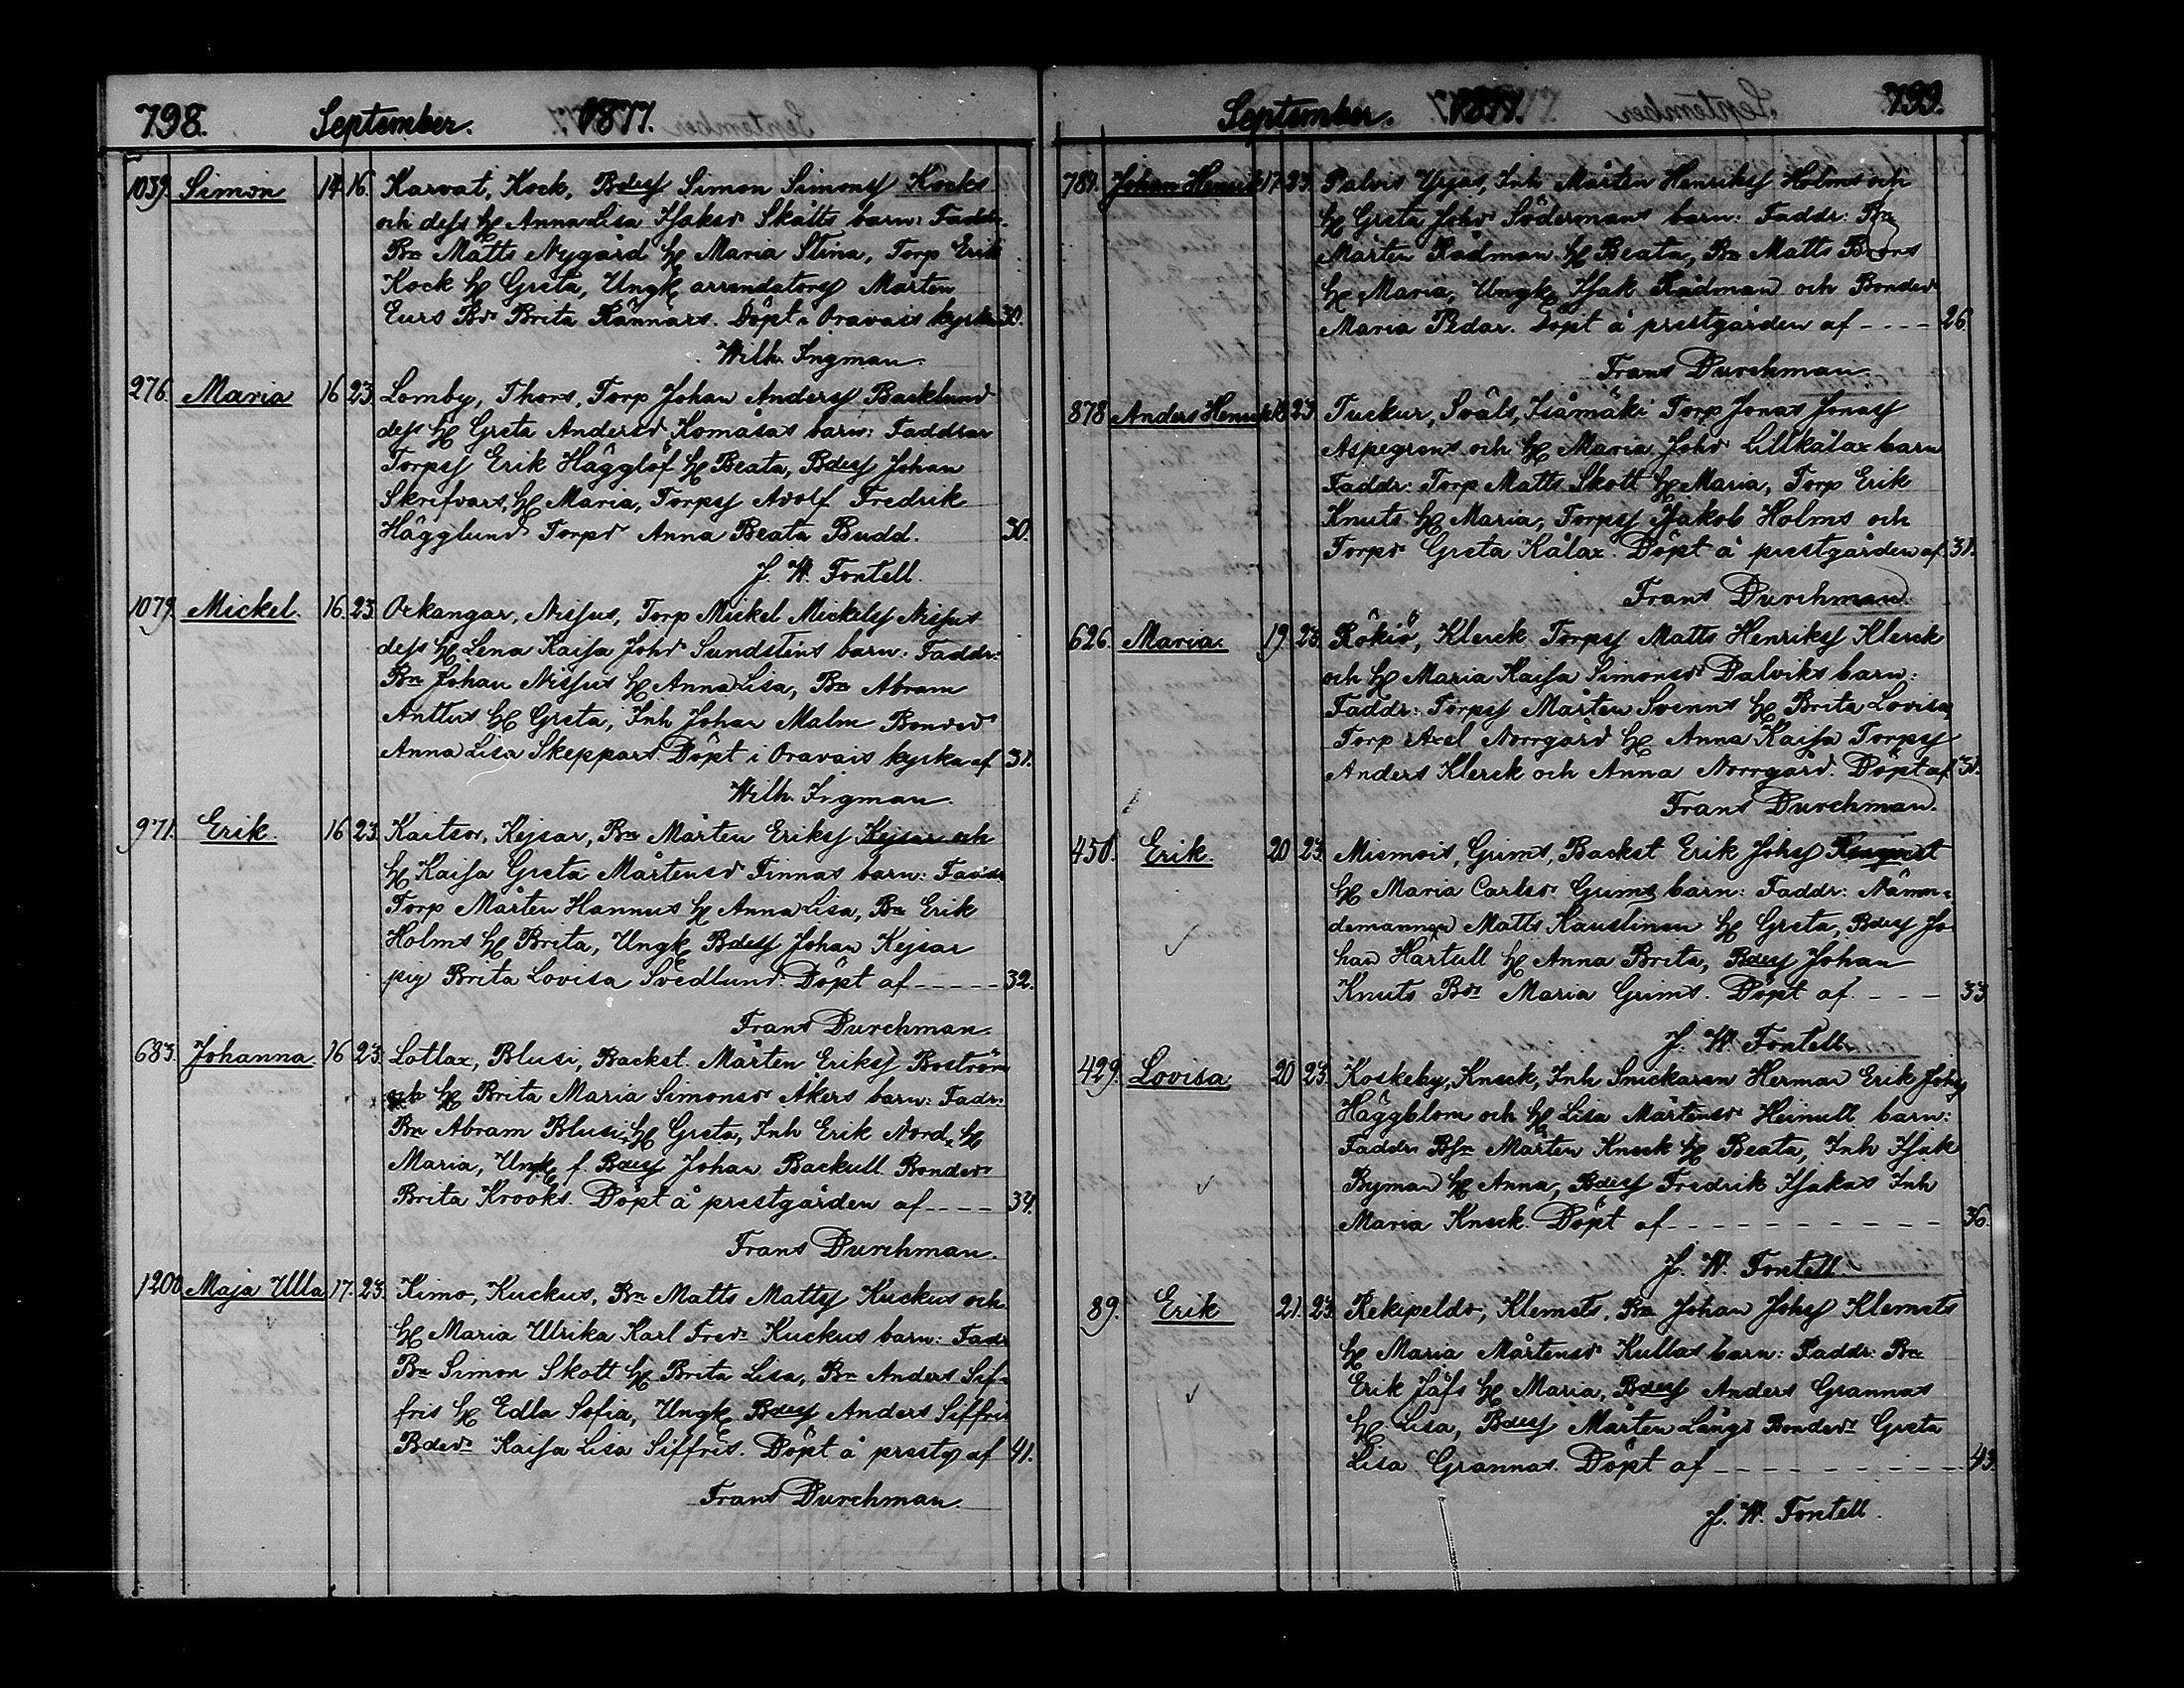 798. September. 1877.
1039. Simon 14 16. Karvat, Kock, Bdess Simon Simonss Kocks
och dess H Anna Lisa Isaksdr Skåtts barn: Faddr.
Bn Matts Nygård H Maria Stina, Torp Erik
Kock H Greta, Ungk arrendatorss Mårten
Eurs Bdr Brita Rännars. Döpt i Oravais kyrka 30.
Wilh. Ingman.
276. Maria 16 23. Lomby, Thors, Torp Johan Anderss Backlund
dess H Greta Andersd Komåsas barn: Faddrar
Torpss Erik Hägglöf H Beata, Bdess Johan
Skrifvars, H Maria, Torpss Adolf Fredrik
Hägglund Torpd Anna Beata Budd. 30.
J. W. Fontell.
1079. Mickel. 16. 23. Orkangar, Nissus, Torp Mickel Mickelss Nissus
dess H Lena Kaisa Johd Sundstens barn: Faddr:
Bn Johan Nissus H Anna Lisa, Bn Abram
Anttus H Greta, Inh Johan Malm Bonded
Anna Lisa Skeppars. Döpt i Oravais kyrka af 31.
Wilh. Ingman.
971. Erik. 16 23. Kaitsor, Kejsar, Bn Mårten Erikss Kejsar och
H Kaisa Greta Mårtensd Finnas barn: Faddr
Torp Mårten Hannus H Anna Lisa, Bn Erik
Holms H Brita, Ungk Bdess Johan Kejsar
pig Brita Lovisa Svedlund. Döpt af - - - - - 32.
Frans Durchman.
683. Johanna. 16 23. Lotlax, Blusi, Backst. Mårten Erikss Boström
och H Brita Maria Simonsdr Åkers barn: Fadr:
Bn Abram Blusi, H Greta, Inh Erik Nord, H
Maria, Ungk f. Bdess Johan Backull Bonded
Brita Krooks. Döpt å prestgården af - - - - 34.
Frans Durchman.
1200 Maja Ulla 17. 23. Kimo, Kuckus, Bn Matts Mattss Kuckus och
H Maria Ulrika Karl Fredr Kuckus barn: Fadr
Bn Simon Skott H Brita Lisa, Bn Anders Sif-
fris H Edla Sofia, Ungk Bdess Anders Siffris
Bdedr Kaisa Lisa Siffris. Döpt å prestg af 41.
Frans Durchman.
September. 1877. 799.
789. Johan Henrik 17. 23. Palvis Yrjas, Inh Mårten Henrikss Holms och
H Greta Johdr Södermans barn: Faddr: Bn
Mårten Rådman H Beata, Bn Matts Brors
H Maria, Ungk Isak Rådman och Bonded
Maria Pedar. Döpt å prestgården af - - - - 26.
Frans Durchman.
878 Anders Henrik 18 23. Tuckur, Svåls, Isåmäki Torp Jonas Jonass
Aspegrens och H Maria Johdr Lillkålax barn
Faddr: Torp Matts Skott H Maria, Torp Erik
Knuts H Maria, Torpss Jakob Holms och
Torpdr Greta Kålax. Döpt å prestgården af 31.
Frans Durchman.
626. Maria. 19. 23. Rökiö, Klerck Torpss Matts Henrikss Klerck
och H Maria Kaisa Simonsdr Dalviks barn:
Faddr: Torpss Mårten Svenns H Brita Lovisa,
Torp Axel Norrgård H Anna Kaisa Torpss
Anders Klerck och Anna Norrgård. Döpt af 31.
Frans Durchman.
450. Erik. 20 23. Miemois, Grims, Backst Erik Johss
H Maria Carlsdr Grims barn: Faddr: Nämn-
demannen Matts Kaustinen H Greta, Bdess Jo
han Hartull H Anna Brita, Bdess Johan
Knuts Bdr Maria Grims. Döpt af - - - 33
J. W. Fontell.
429. Lovisa. 20 23. Koskeby, Kneck, Inh Snickaren Herman Erik Johss
Häggblom och H Lisa Mårtensdr Heinull barn:
Faddr: Bsn Mårten Kneck H Beata, Inh Isak
Byman H Anna, Bdess Fredrik Isakas Inh
Maria Kneck. Döpt af - - - - - - - - - - 36.
J. W. Fontell.
89. Erik 21. 23. Rekipeldo, Klemets, Bn Johan Johss Klemets
H Maria Mårtensdr Kullas barn: Faddr: Bn
Erik Jåfs H Maria, Bdess Anders Grannas
H Lisa, Bdess Mårten Långs Bondedr Greta
Lisa Grannas. Döpt af - - - - - - - - - 43.
J. W. Fontell.